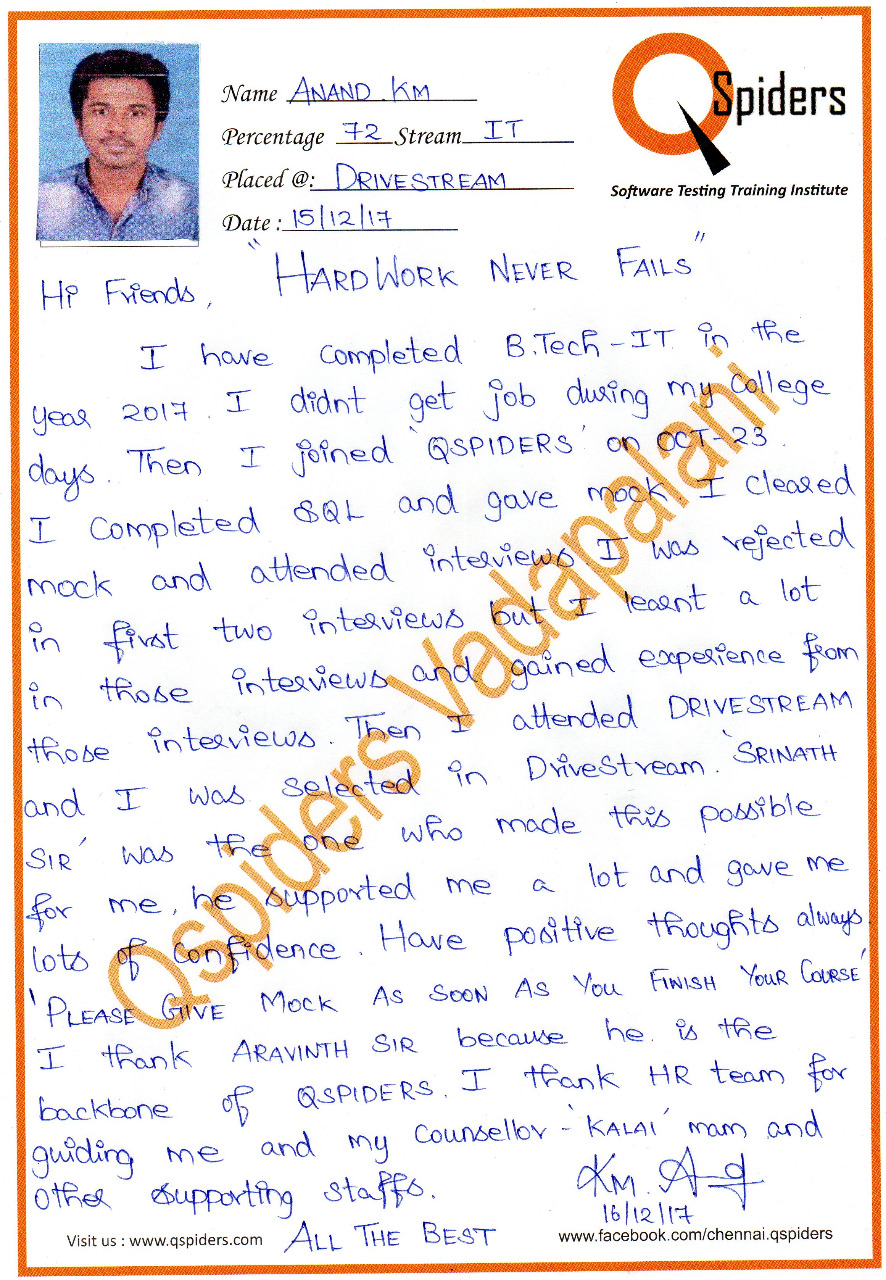 Name ANAND. KM
Percentage 72 Stream IT
Placed @: DRIVESTREAM
Date : 15/12/17
QSpiders
Software Testing Training Institute
"HARDWORK NEVER FAILS"
Hi Friends,
I have completed B.Tech-IT in the
year 2017. I didnt get job during my college
days. Then I joined 'QSPIDERS' on OCT-23.
I completed SQL and gave mock. I cleared
mock and attended interviews I was rejected
in first two interviews but I learnt a lot
in those interviews and gained experience from
those interviews. Then I attended DRIVESTREAM
and I was selected in DriveStream. 'SRINATH
SIR' was the one who made this possible
for me, he supported me a lot and gave me
lots of confidence. Have positive thoughts always.
'PLEASE GIVE MOCK AS SOON AS YOU FINISH YOUR COURSE'
I thank ARAVINTH SIR because he is the
backbone of QSPIDERS. I thank HR team for
guiding me and my Counsellor - 'KALAI' mam and
other supporting staffs.
KM.
16/12/17
ALL THE BEST
Visit us : www.qspiders.com
www.facebook.com/chennai.qspiders
Qspiders Vadapalani